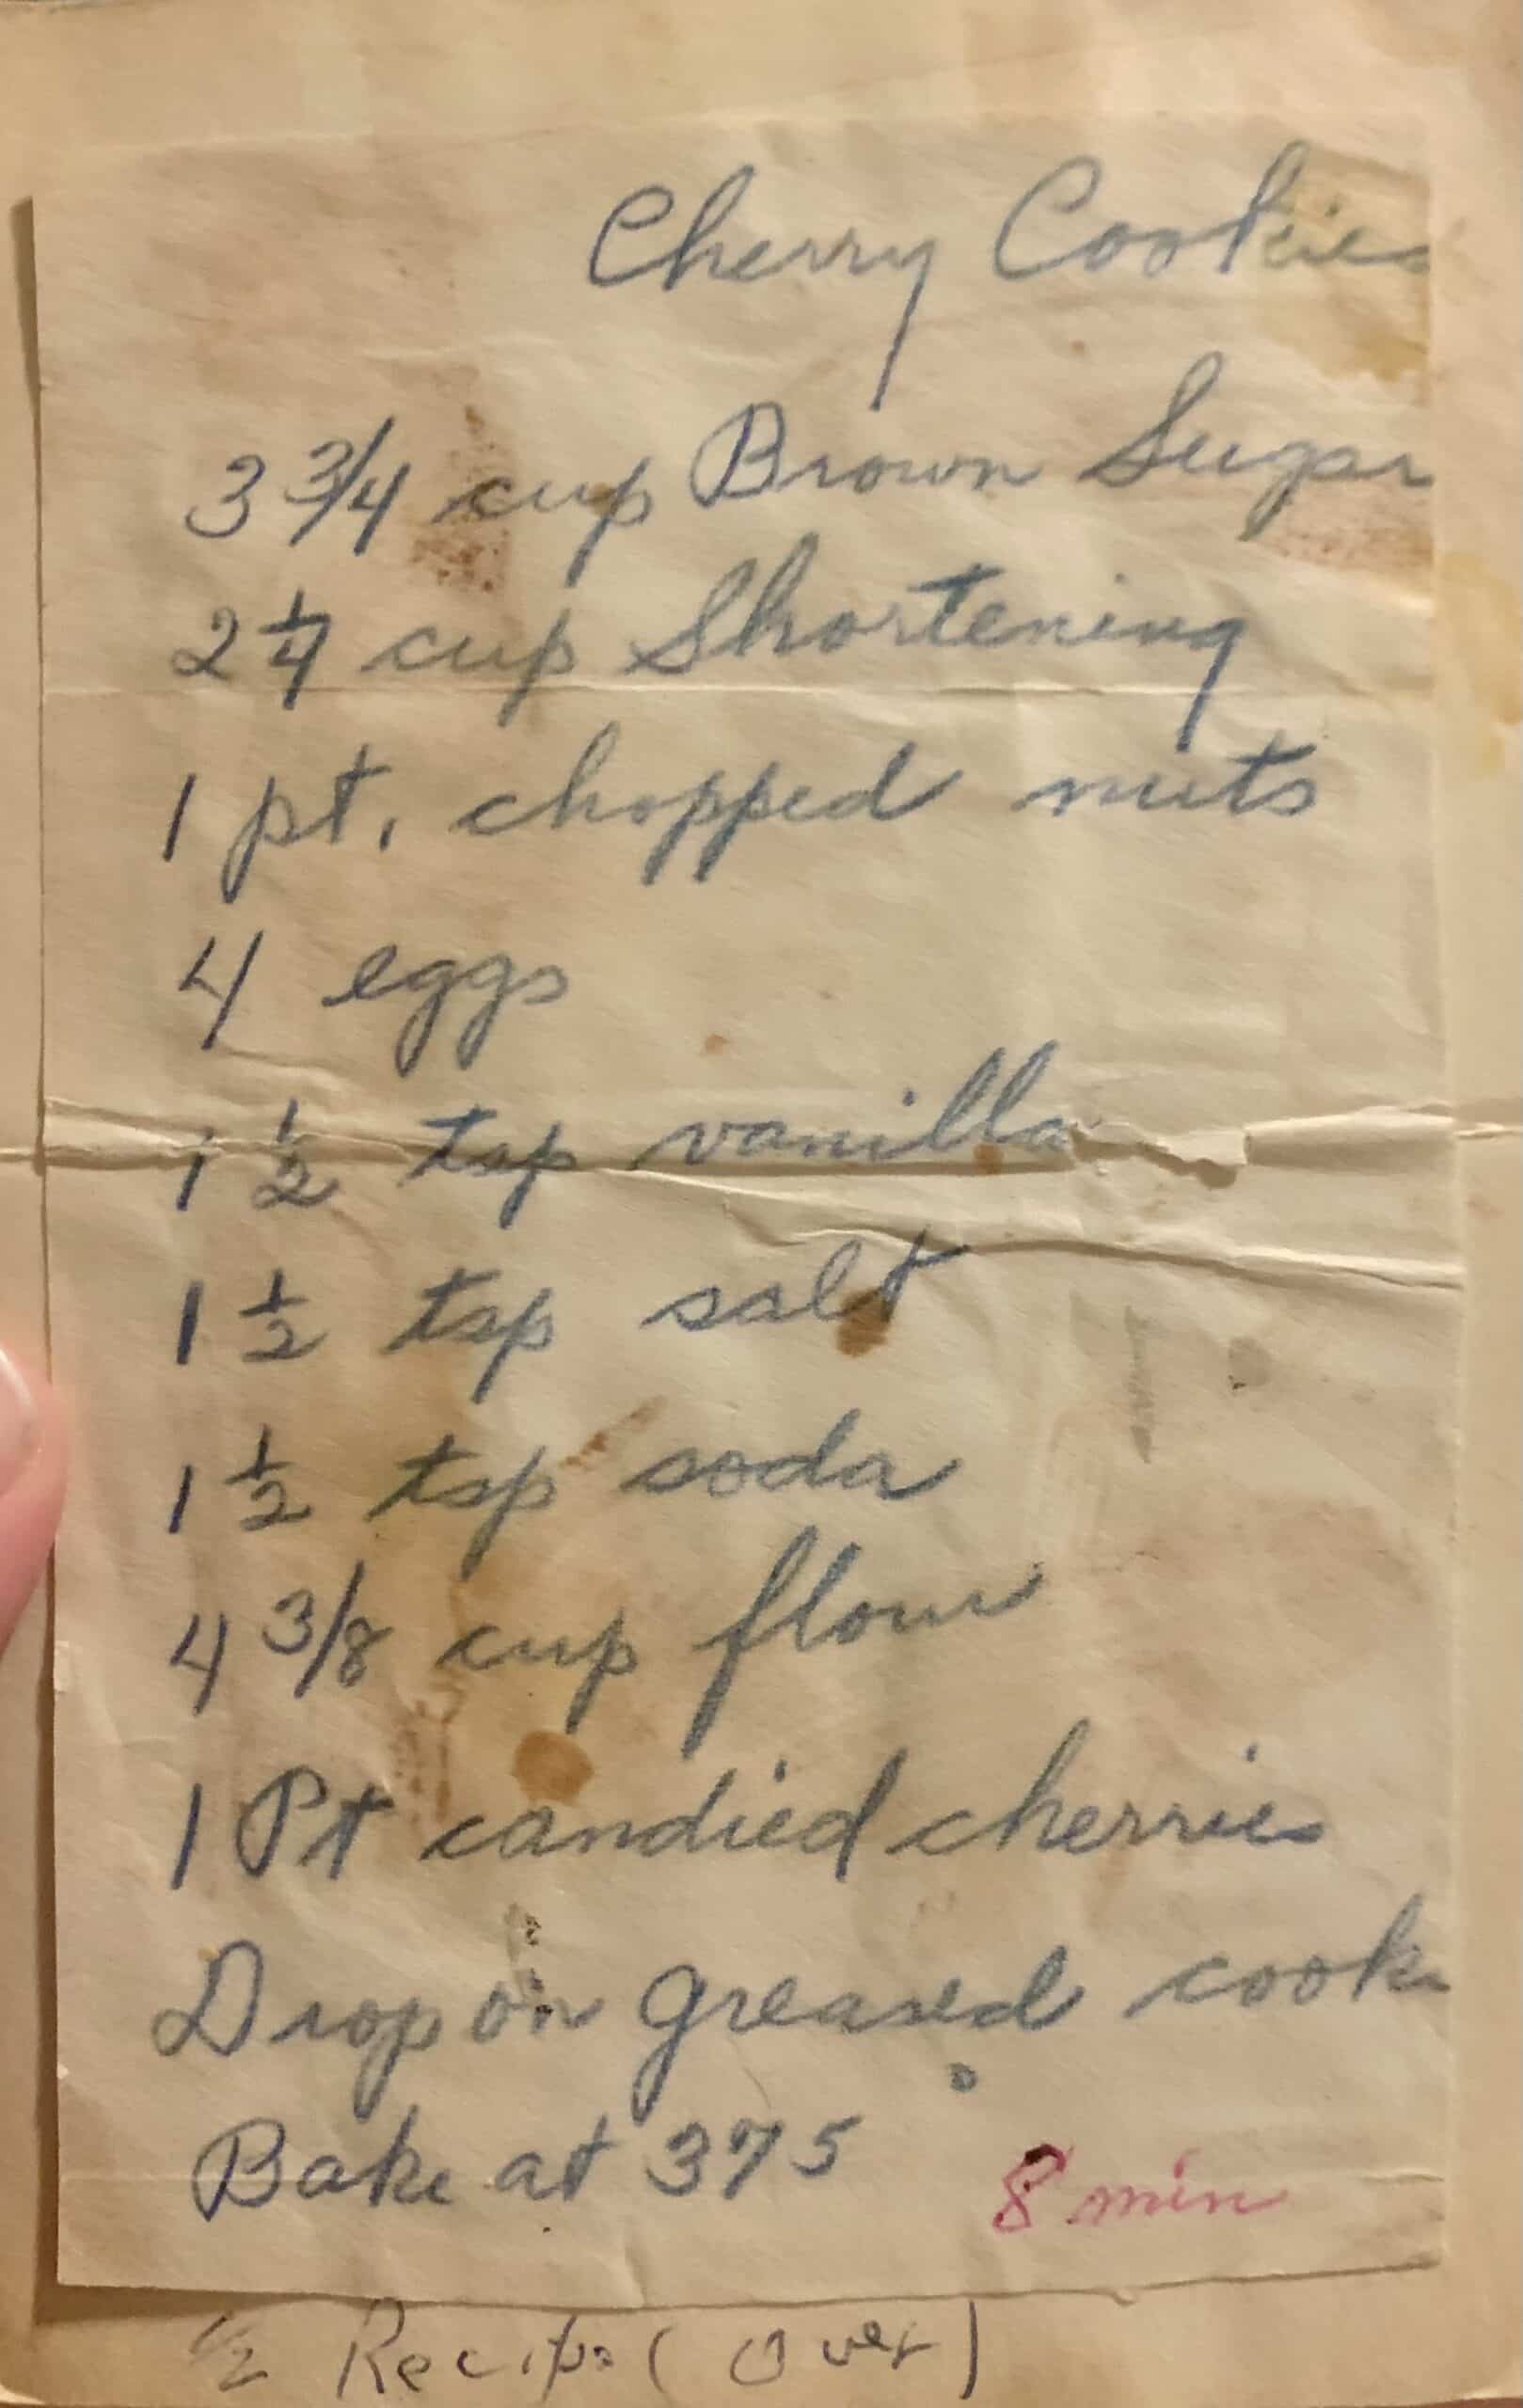 Cherry Cookies
3 3/4 cup Brown Sugar
2 1/4 cup Shortening
1 pt. chopped nuts
4 eggs
1 1/2 tsp vanilla
1 1/2 tsp salt
1 1/2 tsp soda
4 3/8 cup flour
1 Pt candied cherries
Drop on greased cook
Bake at 375° 8 min
1/2 Recipe (Over)